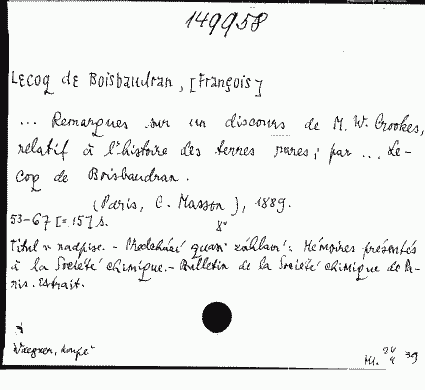 149958
Lecoq de Boisbaudran, [François]
... Remarques sur un discours de M. W. Crookes,
relatif à l'histoire des terres rares; par ... Le-
coq de Boisbaudran.
(Paris, C. Masson), 1889.
53-67 [= 15] s. 8°
Titul v nadpise. - Předchází quasi záhlaví: Mémoires présentés
à la Société chimique. - Bulletin de la Société chimique de Pa-
ris. Extrait.
Wagner, koupě
39